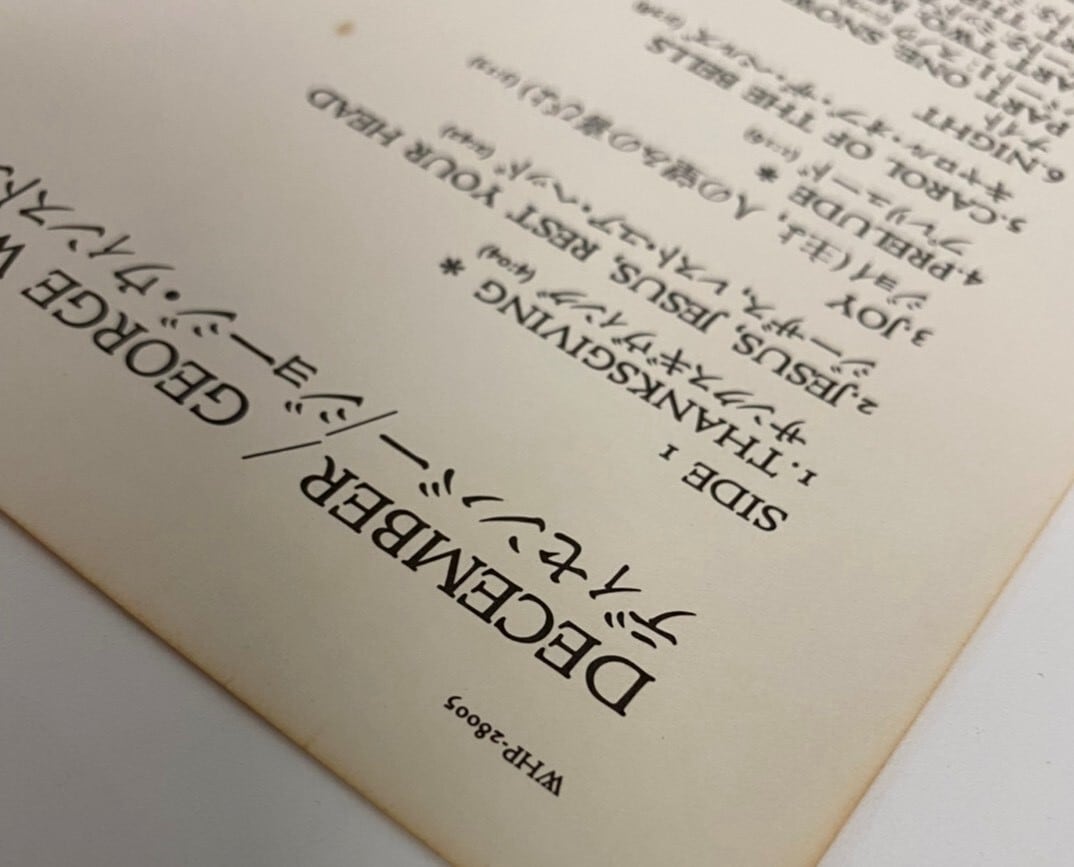 WHP-28005
DECEMBER / GEORGE W
ディセンバー/ジョージ・ウィンスト
SIDE 1
1. THANKSGIVING *
サンクスギヴィング (4:04)
2.JESUS, JESUS, REST YOUR HEAD
ジーザス, レスト・ユア・ヘッド
3.JOY
ジョイ (主よ, 人の望みの喜びよ)
4.PRELUDE *
プレリュード
5.CAROL OF THE BELLS
キャロル・オブ・ザ・ベルズ
6.NIGHT
ナイト
PART ONE: SNOW